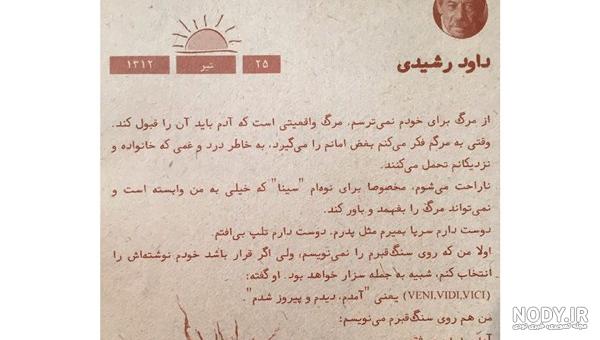 داود رشیدی
۲۵
تیر
۱۳۱۲
از مرگ برای خودم نمی‌ترسم، مرگ واقعیتی است که آدم باید آن را قبول کند.
وقتی به مرگم فکر می‌کنم بغض امانم را می‌گیرد، به خاطر درد و غمی که خانواده و
نزدیکانم تحمل می‌کنند.
ناراحت می‌شوم، مخصوصا برای نوه‌ام "سینا" که خیلی به من وابسته است و
نمی‌تواند مرگ را بفهمد و باور کند.
دوست دارم سرپا بمیرم مثل پدرم، دوست دارم تلپ بی‌افتم.
اولا من که روی سنگ‌قبرم را نمی‌نویسم، ولی اگر قرار باشد خودم نوشته‌اش را
انتخاب کنم، شبیه به جمله سزار خواهد بود. او گفته:
(VENI,VIDI,VICI) یعنی "آمدم، دیدم و پیروز شدم".
من هم روی سنگ‌قبرم می‌نویسم:
NODY.IR